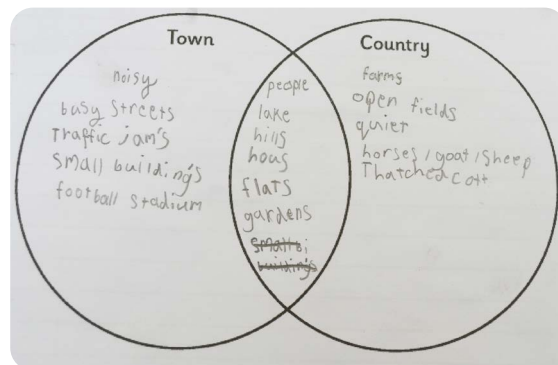 Town
noisy
busy streets
Traffic jam's
small building's
football stadium
people
lake
hills
hous
flats
gardens
smalls;
building's
Country
farms
open fields
quiet
horses / goat / sheep
Thatched cott